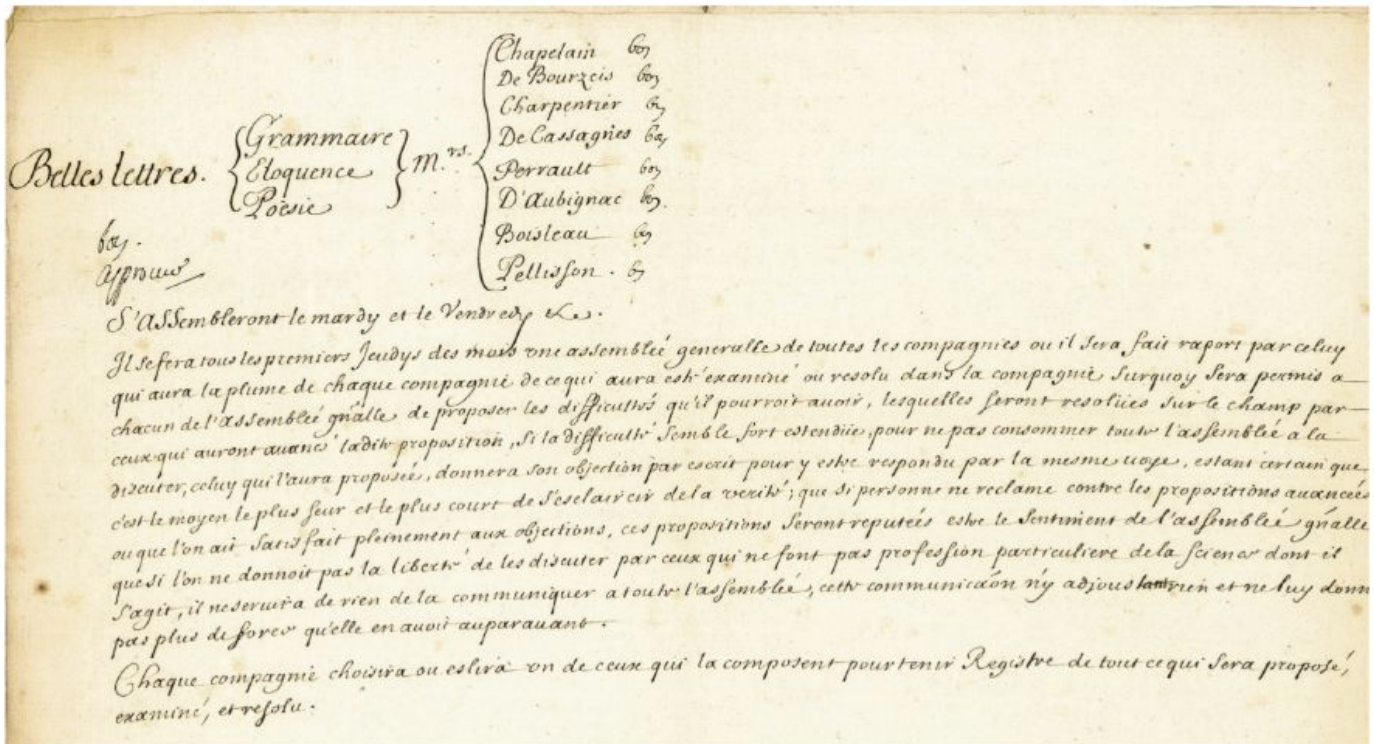 Belles lettres.
Grammaire
Eloquence
Poësie
M.rs.
Chapelain bon
De Bourzeis bon
Charpentier bon
De Cassagnes bon
Perrault bon
D'Aubignac bon.
Boisleau bon
Pellisson . bon
bon .
approuué
S'Assembleront le mardy et le Vendredy &c .
Il se fera tous les premiers Jeudys des mois vne assembleé generalle de toutes les compagnies ou il sera fait raport par celuy
qui aura la plume de chaque compagnie de ce qui aura esté examiné ou resolu dans la compagnie surquoy sera permis a
chacun de l'assembleé gñalle de proposer les difficultés qu'il pourroit avoir, lesquelles seront resolües sur le champ par
ceux qui auront auancé ladite proposition, Si la difficulté semble fort estendüe, pour ne pas consommer toute l'assembleé a la
discuter, celuy qui l'aura proposée, donnera son objection par escrit pour y estre respondu par la mesme uoye, estant certain que
c'est le moyen le plus seur et le plus court de s'esclaircir de la verité; que si personne ne reclame contre les propositions auancées
ou que l'on ait satisfait pleinement aux objections, ces propositions seront reputeés estre le sentiment de l'assembleé gñalle
que si l'on ne donnoit pas la liberté de les discuter par ceux qui ne font pas profession particuliere de la science dont il
s'agit, il ne seruira de rien de la communiquer a toute l'assembleé, cette communicãon n'y adjoustant rien et ne luy donn
pas plus de force qu'elle en auoit auparauant .
Chaque compagnie choisira ou eslira vn de ceux qui la composent pour tenir Registre de tout ce qui sera proposé,
examiné, et resolu .